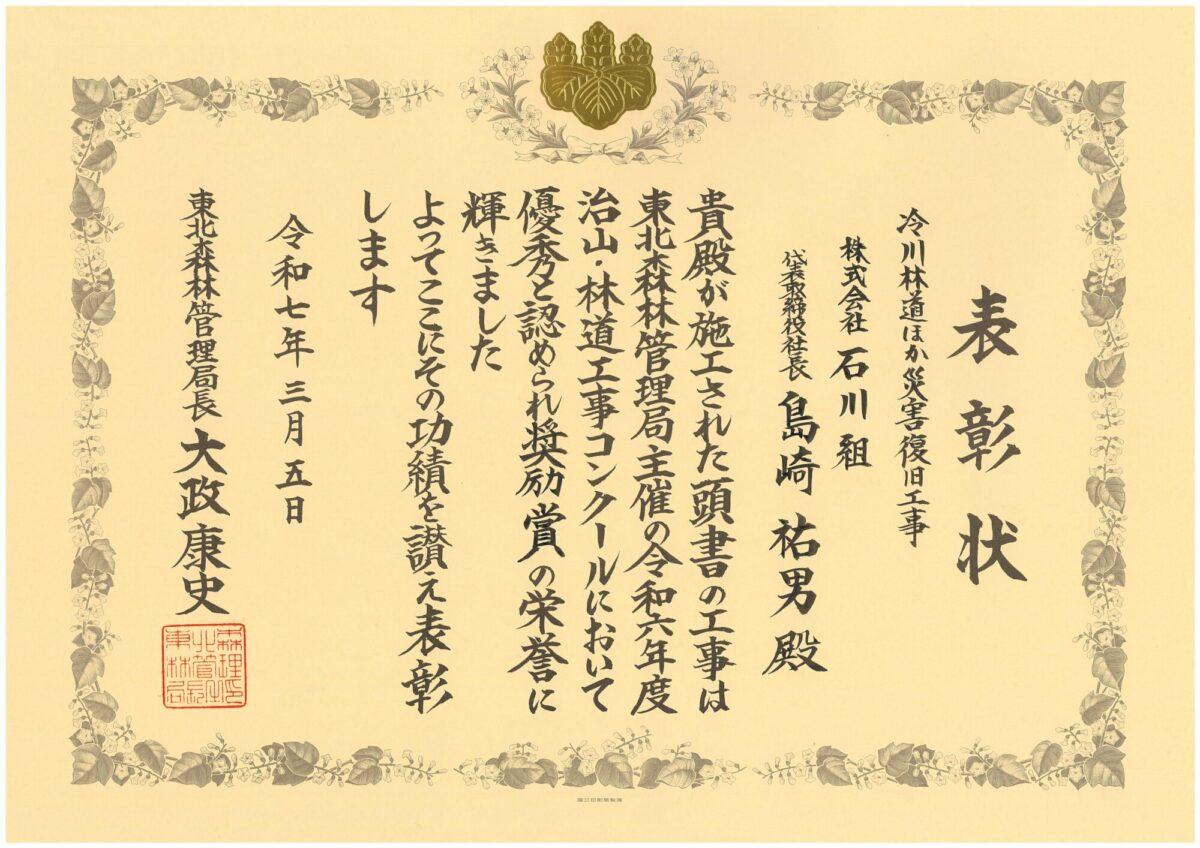 表彰状
冷川林道ほか災害復旧工事
株式会社 石川組
代表取締役社長 島崎 祐男 殿
貴殿が施工された頭書の工事は
東北森林管理局主催の令和六年度
治山・林道工事コンクールにおいて
優秀と認められ奨励賞の栄誉に
輝きました
よってここにその功績を讃え表彰
します
令和七年三月五日
東北森林管理局長 大政康史
国立印刷局製造